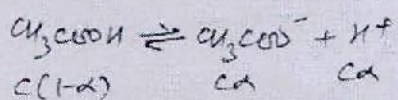 CH₃COOH ⇌ CH₃COO⁻ + H⁺
C(1-α) Cα Cα